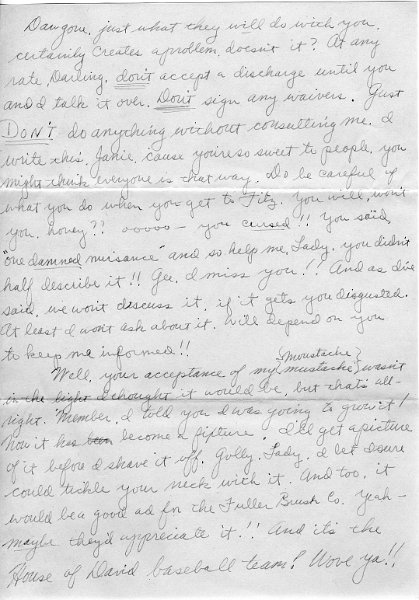 Dawgone, just what they will do with you,
certainly creates a problem, doesn't it? At any
rate, Darling, don't accept a discharge until you
and I talk it over. Don't sign any waivers. Just
DON'T do anything without consulting me. I
write this, Janie, 'cause you're so sweet to people, you
might think everyone is that way. Do be careful of
what you do when you get to Fitz. You will, won't
you, honey?? ooooo - you cursed!! You said,
"one damned nuisance" and so help me, Lady, you didn't
half describe it!! Gee, I miss you!! And as I've
said, we won't discuss it, if it gets you disgusted.
At least I won't ask about it. Will depend on you
to keep me informed!!
Well, your acceptance of my mustache (Moustache) wasn't
in the light I thought it would be, but that's all-
right. 'Member, I told you I was going to grow it!
Now it has become a fixture. I'll get a picture
of it before I shave it off. Golly, Lady, I bet I sure
could tickle your neck with it. And too, it
would be a good ad for the Fuller Brush Co. Yeah -
maybe they'd appreciate it!! And it's the
House of David baseball team! Wove ya!!